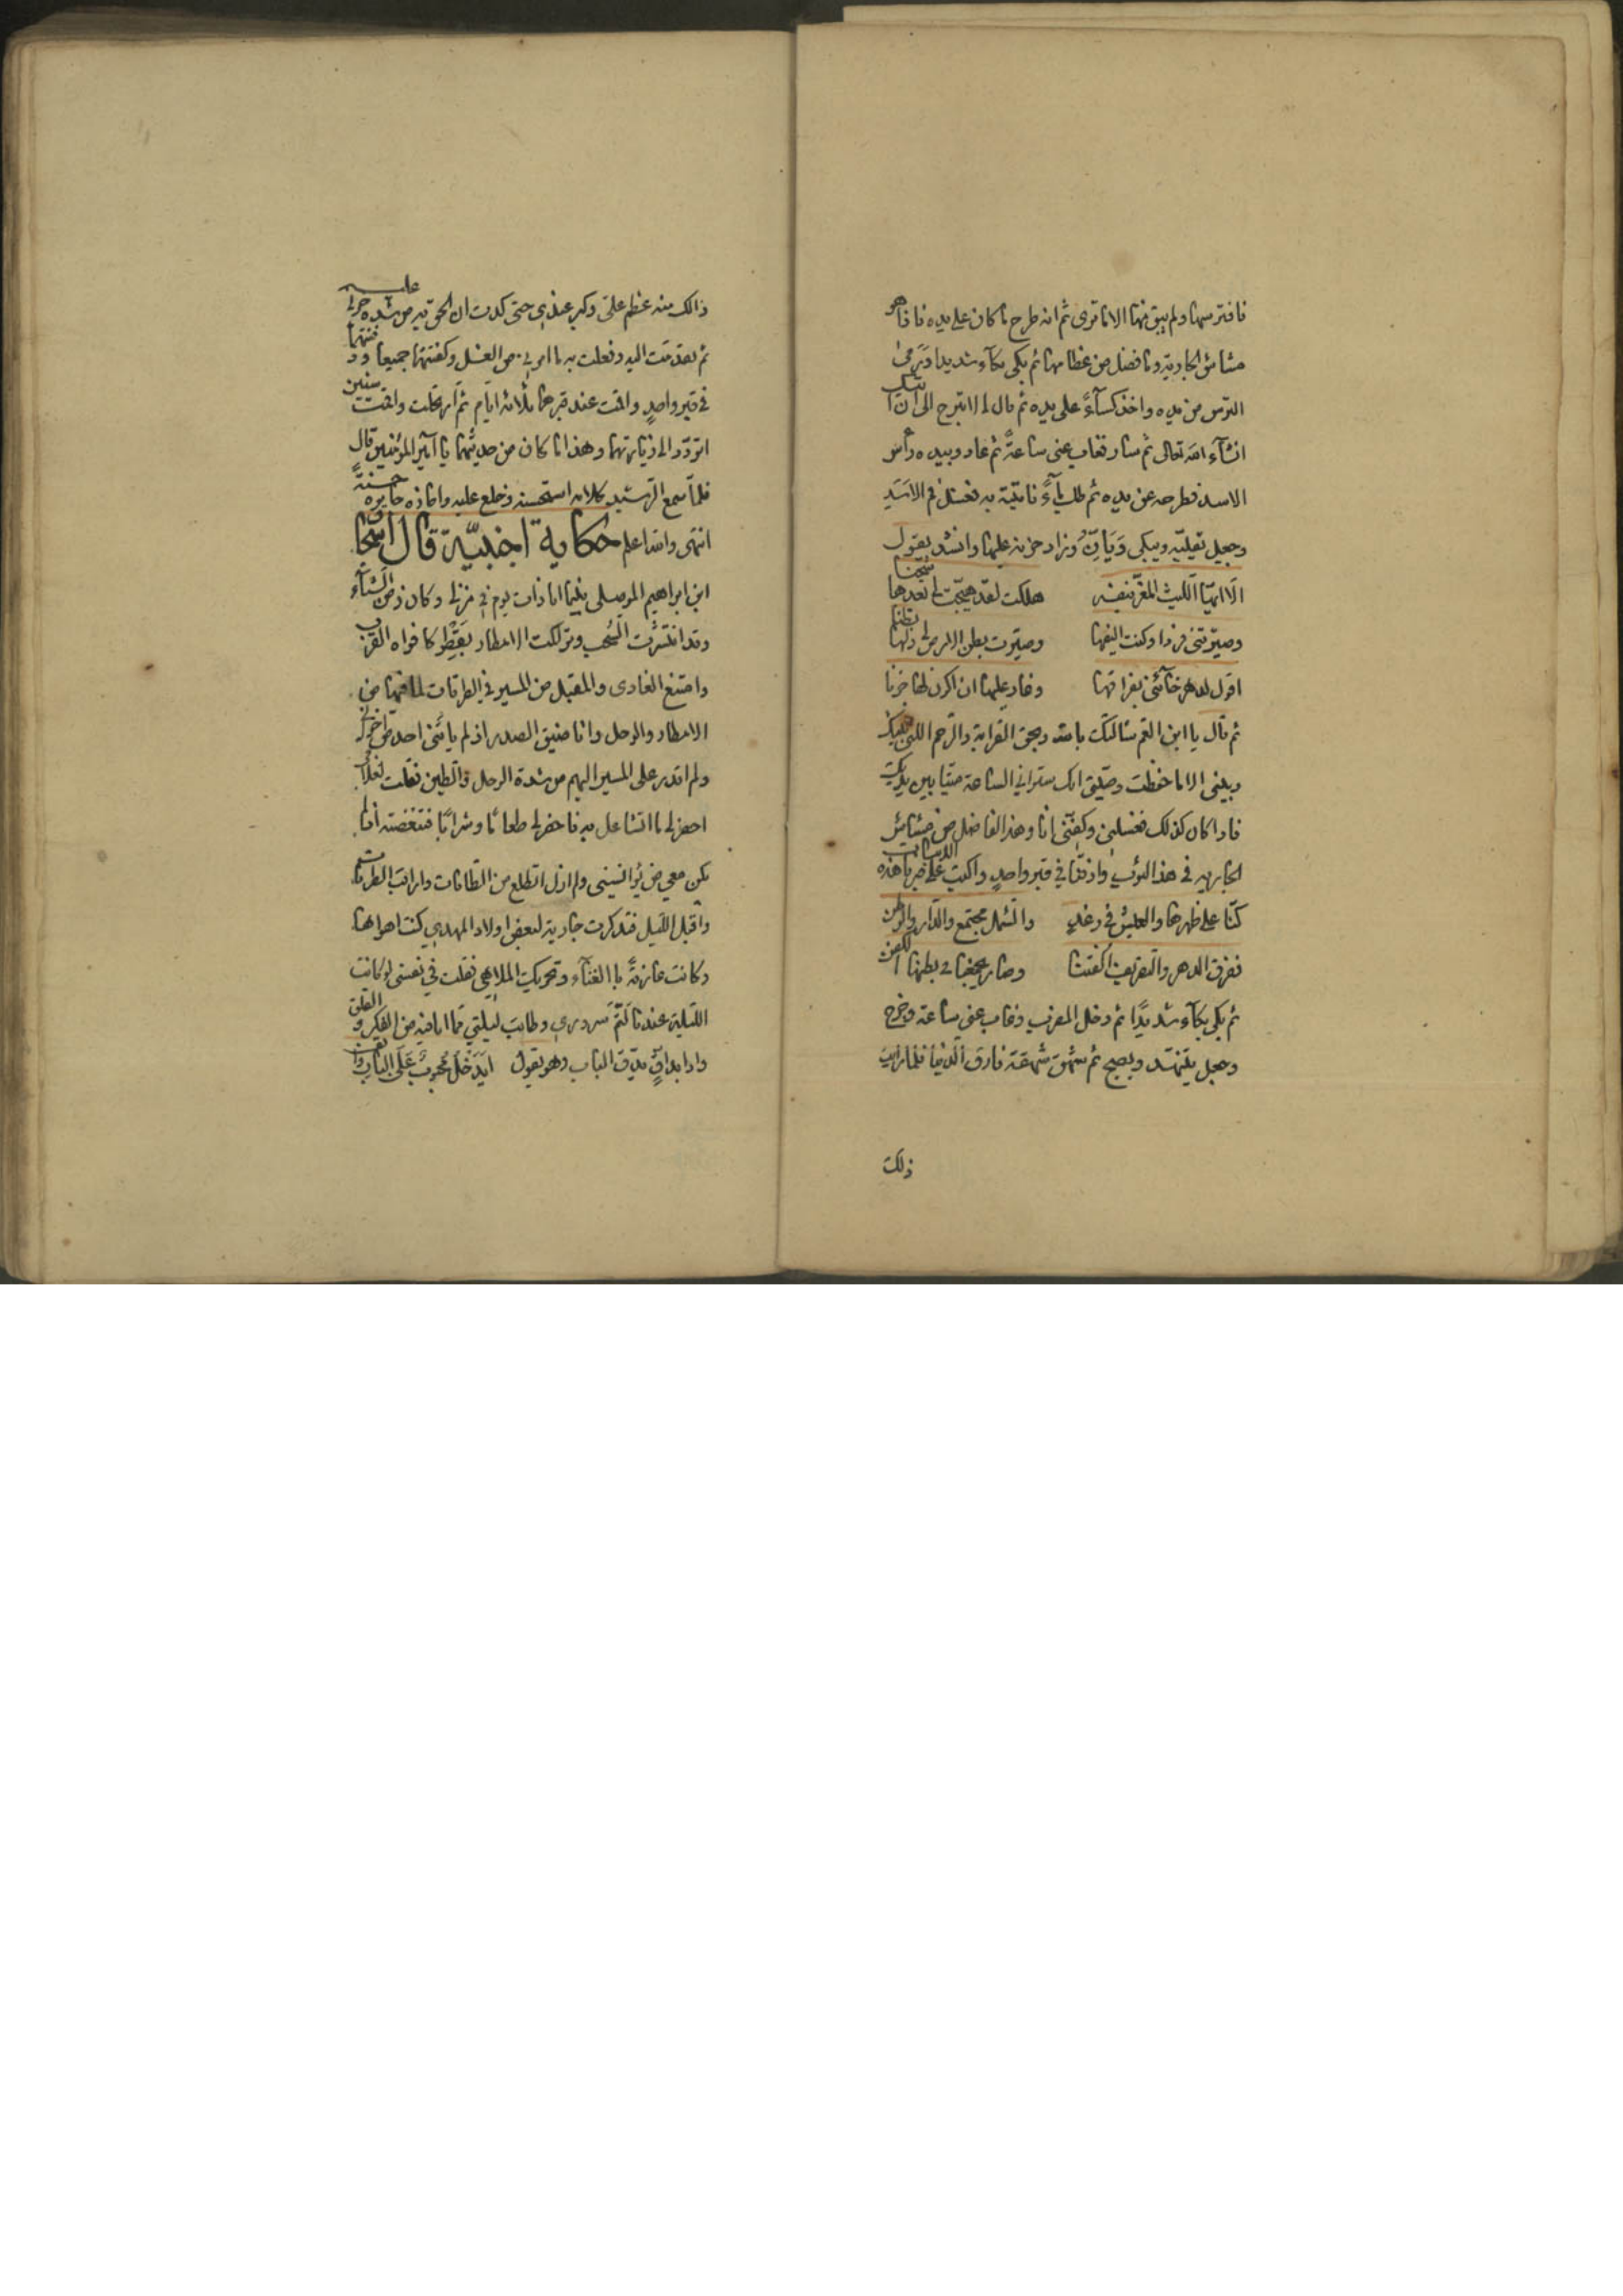 فافترسها ولم يبق منها الا ما ترى ثم انه طرح ما كان على يده فاذا هو
مشاش الجارية وما فضل من عظامها ثم بكى بكآء شديدا ورمى
الترس من يده واخذ كسآءً على يده ثم قال لا تبرح الى ان آتيك
انشآء الله تعالى ثم سار فغاب عنى ساعةً ثم عاد وبيده رأس
الاسد فطرحه عن يده ثم طلب مآءً فاتيته به فغسل فم الاسد
وجعل يقبله ويبكى وزاد حزنه عليها وانشد يقول
الا ايها الليث المغر بنفسه هلكت لقد هيجت لى بعدها شجنا
وصيرتنى فردا وكنت اليفها وصيرت بطن الارض لى ولها
اقول لدهر خآننى بفراقها وعار عليها ان اكون لها خونا
ثم قال يا ابن العم سالتك بالله وبحق القرابة والرحم اللتى بينك
وبينى الا ما حفظت وصيتى انك سترانى الساعة ميتا بين يديك
فاذا كان كذلك فغسلنى وكفنى انا وهذا الفاضل من مشاش
الجاريه فى هذا الثوب وادفنا فى قبر واحدٍ واكتب على قبرنا هذه الابيات
كنا على ظهرها والعيش فى رغدٍ والشمل مجتمع والدار والوطن
ففرق الدهر والتصريف الفتنا وصار يجمعنا فى بطنها الكفن
ثم بكى بكآء شديدًا ثم دخل المضرب وغاب عنى ساعة وخرج
وجعل يتنهد ويصيح ثم شهق شهقة فارق الدنيا فلما رايت
ذلك
ذالك منه عظم على وكبر عندى حتى كدت ان الحق به من شدة حزنى عليه
ثم تقدمت اليه وفعلت به ما امرنى من الغسل وكفنتهما جميعا ودفنتهما
فى قبر واحدٍ واقمت عند قبرهما ثلاثة ايام ثم ارتحلت واقمت سنين
اتردد الى زيارتهما وهذا ما كان من حديثهما يا امير المؤمنين قال
فلما سمع الرشيد كلامه استحسنه وخلع عليه واجازه جايزه حسنةً
انتهى والله اعلم حكاية اجنبيّة قال اسحاق
ابن ابراهيم الموصلى بينما انا ذات يوم فى منزلى وكان زمن الشتآء
وقد انتشرت السحب وتراكمت الامطار بقطر كافواه القرب
وامتنع الغادى والمقبل من المسير فى الطرقات لما فيها من
الامطار والوحل وانا ضيق الصدر اذ لم ياتنى احد من اخوانى
ولم اقدر على المسير اليهم من شدة الوحل والطين فقلت لغلامى
احضر لى ما اتشاغل به فاحضر لى طعامًا وشرابًا فتنغصته اذ لم
يكن معى من يؤانسنى ولم ازل اتطلع من الطاقات واراقب الطرقات
واقبل الليل فتذكرت جارية لبعض اولاد المهدى كنت اهواها
وكانت عارفةً باالغنآء وتحريك الملاهى فقلت فى نفسى لو كانت
الليلة عندنا لتم سرورى وطابت ليلتى مما انا فيه من الفكر والقلق
واذا بداقٍ يدق الباب وهو يقول ايدخل محبوب على الباب واقف